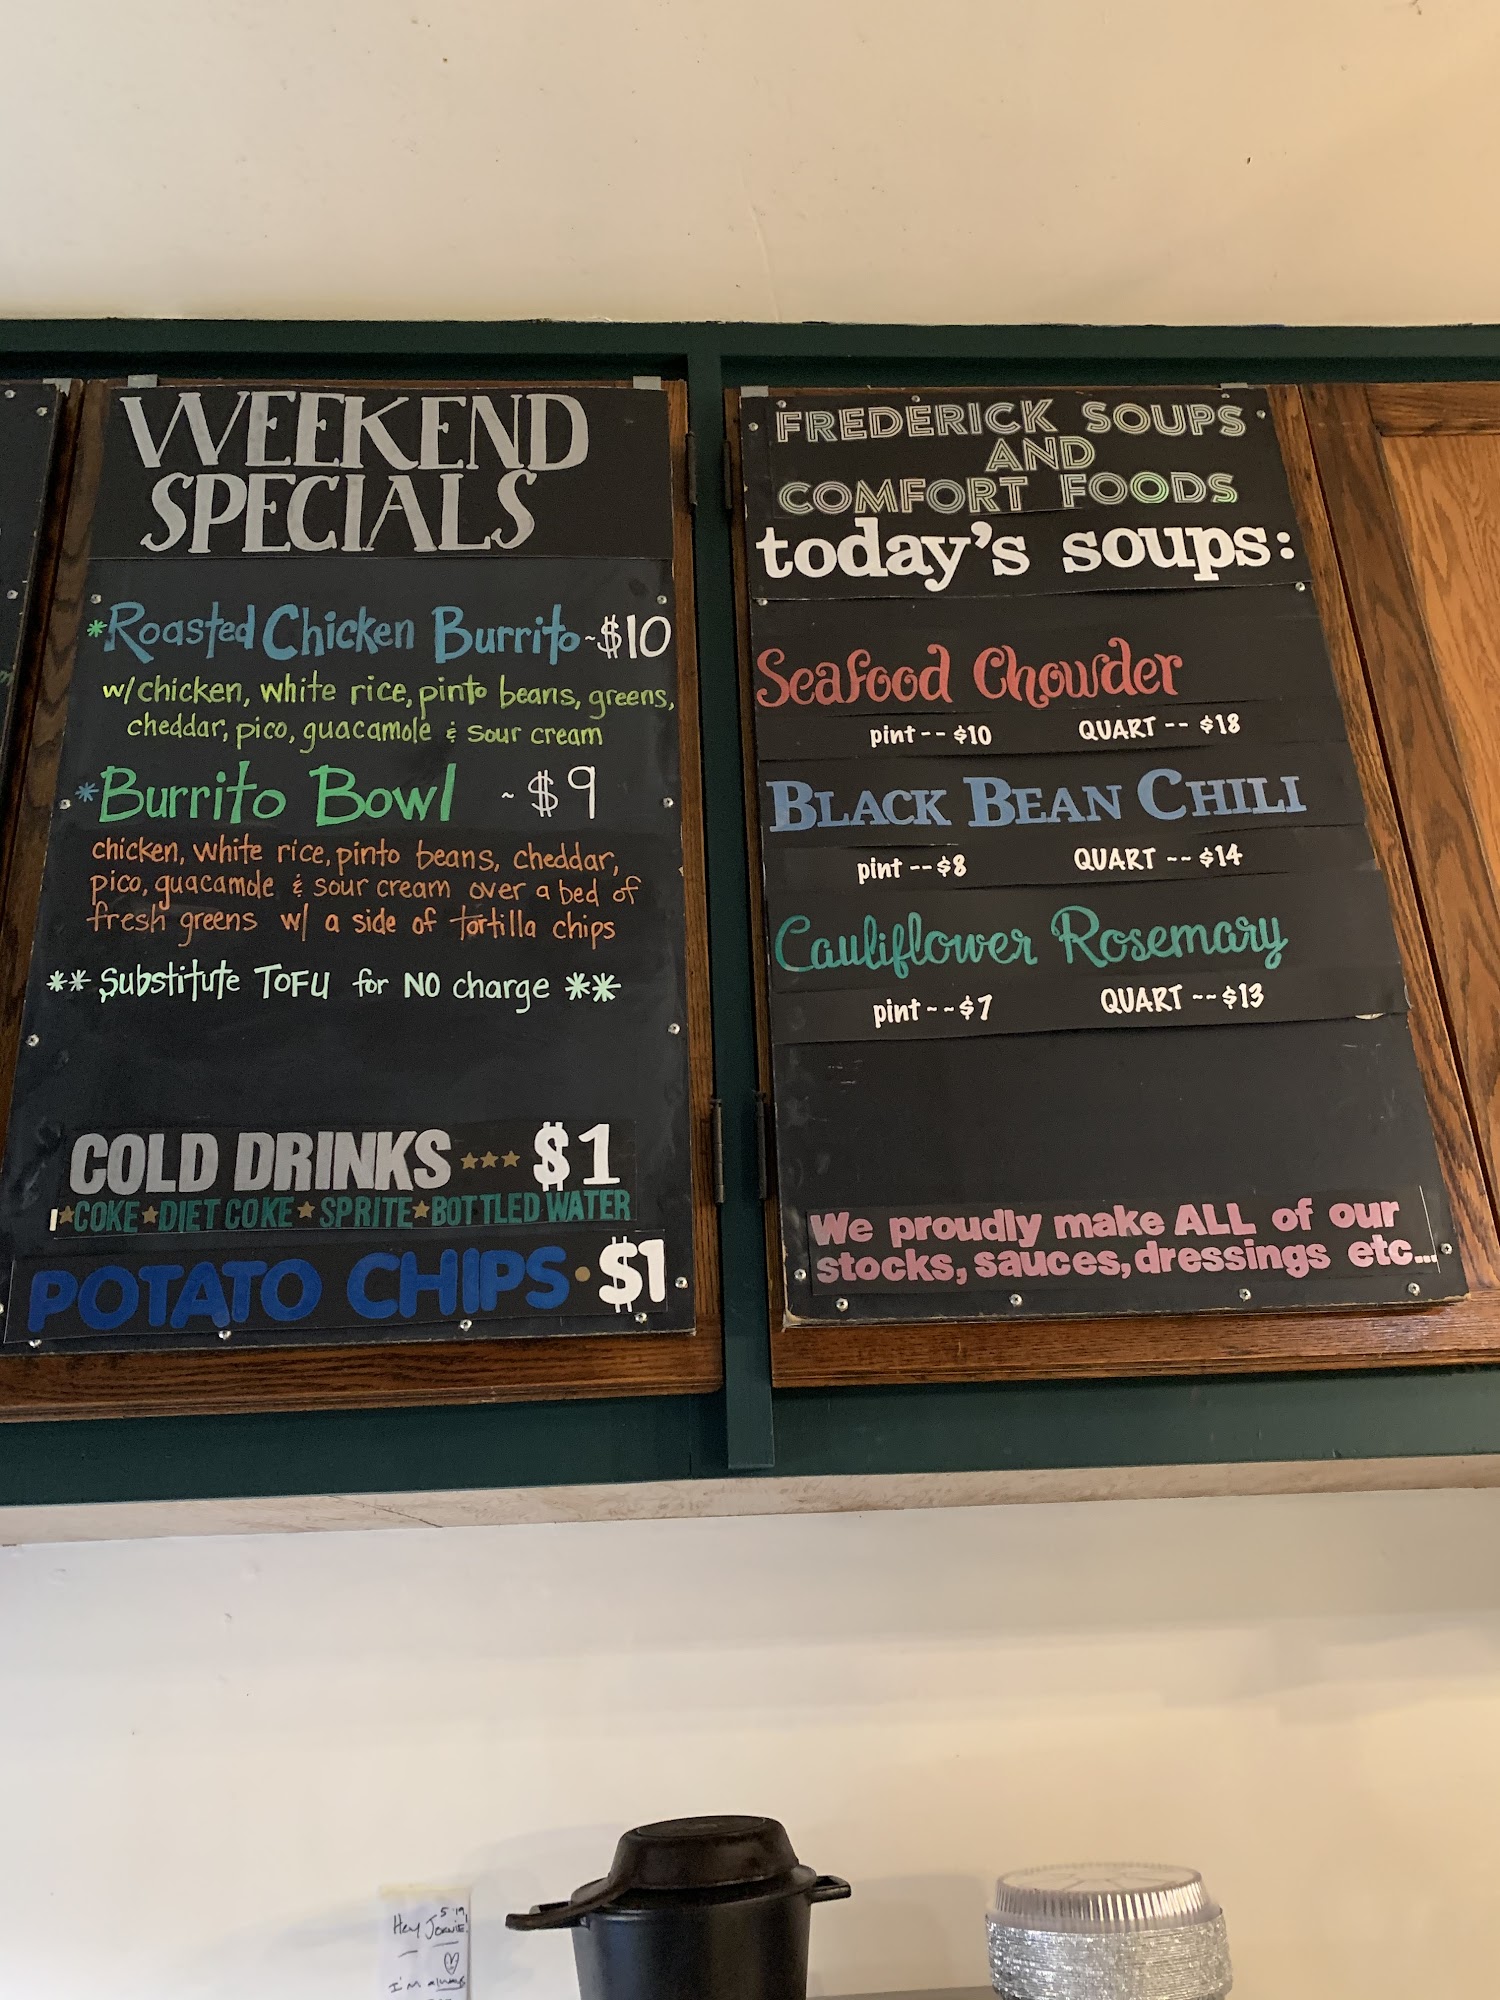 WEEKEND
SPECIALS
*Roasted Chicken Burrito ~ $10
w/chicken, white rice, pinto beans, greens,
cheddar, pico, guacamole & sour cream
*Burrito Bowl ~ $9
chicken, white rice, pinto beans, cheddar,
pico, guacamole & sour cream over a bed of
fresh greens w/ a side of tortilla chips
** Substitute TOFU for NO charge **
COLD DRINKS ★★★ $1
★COKE★DIET COKE★SPRITE★BOTTLED WATER
POTATO CHIPS • $1
FREDERICK SOUPS
AND
COMFORT FOODS
today's soups:
Seafood Chowder
pint -- $10 QUART -- $18
BLACK BEAN CHILI
pint -- $8 QUART -- $14
Cauliflower Rosemary
pint -- $7 QUART -- $13
We proudly make ALL of our
stocks, sauces, dressings etc...
5.19
Hey
I'm always